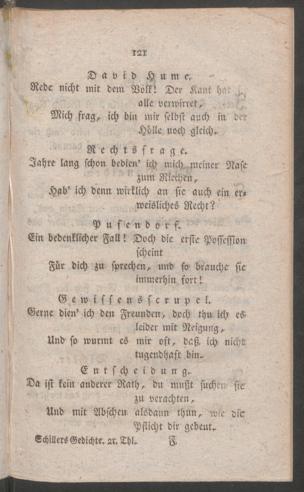 121
David Hume.
Rede nicht mit dem Volk! Der Kant hat
alle verwirret,
Mich frag, ich bin mir selbst auch in der
Hölle noch gleich.
Rechtsfrage.
Jahre lang schon bedien' ich mich meiner Nase
zum Riechen,
Hab' ich denn wirklich an sie auch ein er-
weisliches Recht?
Pufendorf.
Ein bedenklicher Fall! Doch die erste Possession
scheint
Für dich zu sprechen, und so brauche sie
immerhin fort!
Gewissensscrupel.
Gerne dien' ich den Freunden, doch thu ich es
leider mit Neigung,
Und so wurmt es mir oft, daß ich nicht
tugendhaft bin.
Entscheidung.
Da ist kein anderer Rath, du mußt suchen sie
zu verachten,
Und mit Abscheu alsdann thun, wie die
Pflicht dir gebeut.
Schillers Gedichte. 2r. Thl. F